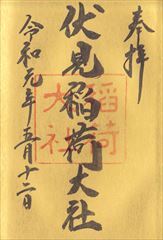 奉拝
伏見稲荷大社
稲荷大社
令和元年五月十二日